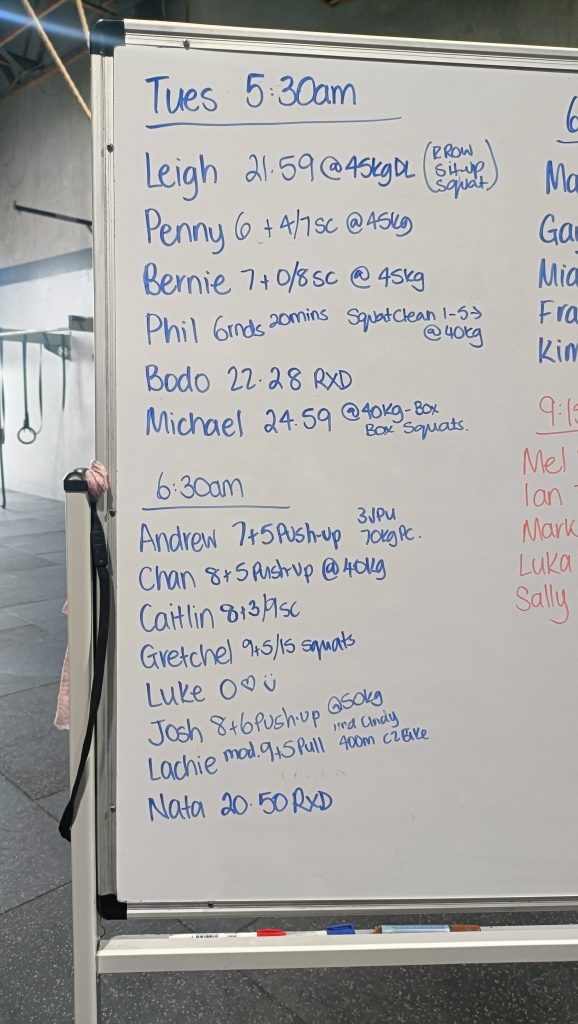 Tues 5:30am
Leigh 21.59 @45kg DL (RROW
Sit-up
Squat)
Penny 6 + 4/7 SC @45kg
Bernie 7+0/8 SC @ 45kg
Phil 6rnds 20mins Squat Clean 1-5→
@40kg
Bodo 22.28 RXD
Michael 24.59 @40kg-Box
Box Squats.
6:30am
Andrew 7+5 Push-up 3JPU
70kg PC.
Chan 8+5 Push-up @40kg
Caitlin 8+3/9 SC
Gretchel 9+5/15 squats
Luke 0♡ ü
Josh 8+6 Push-up @50kg
Lachie mod. 9+5 Pull 1rnd Cindy
400m C2 Bike
Nata 20.50 RXD
6
Ma
Ga
Mia
Fra
Kim
9:15
Mel
Ian
Mark
Luka
Sally